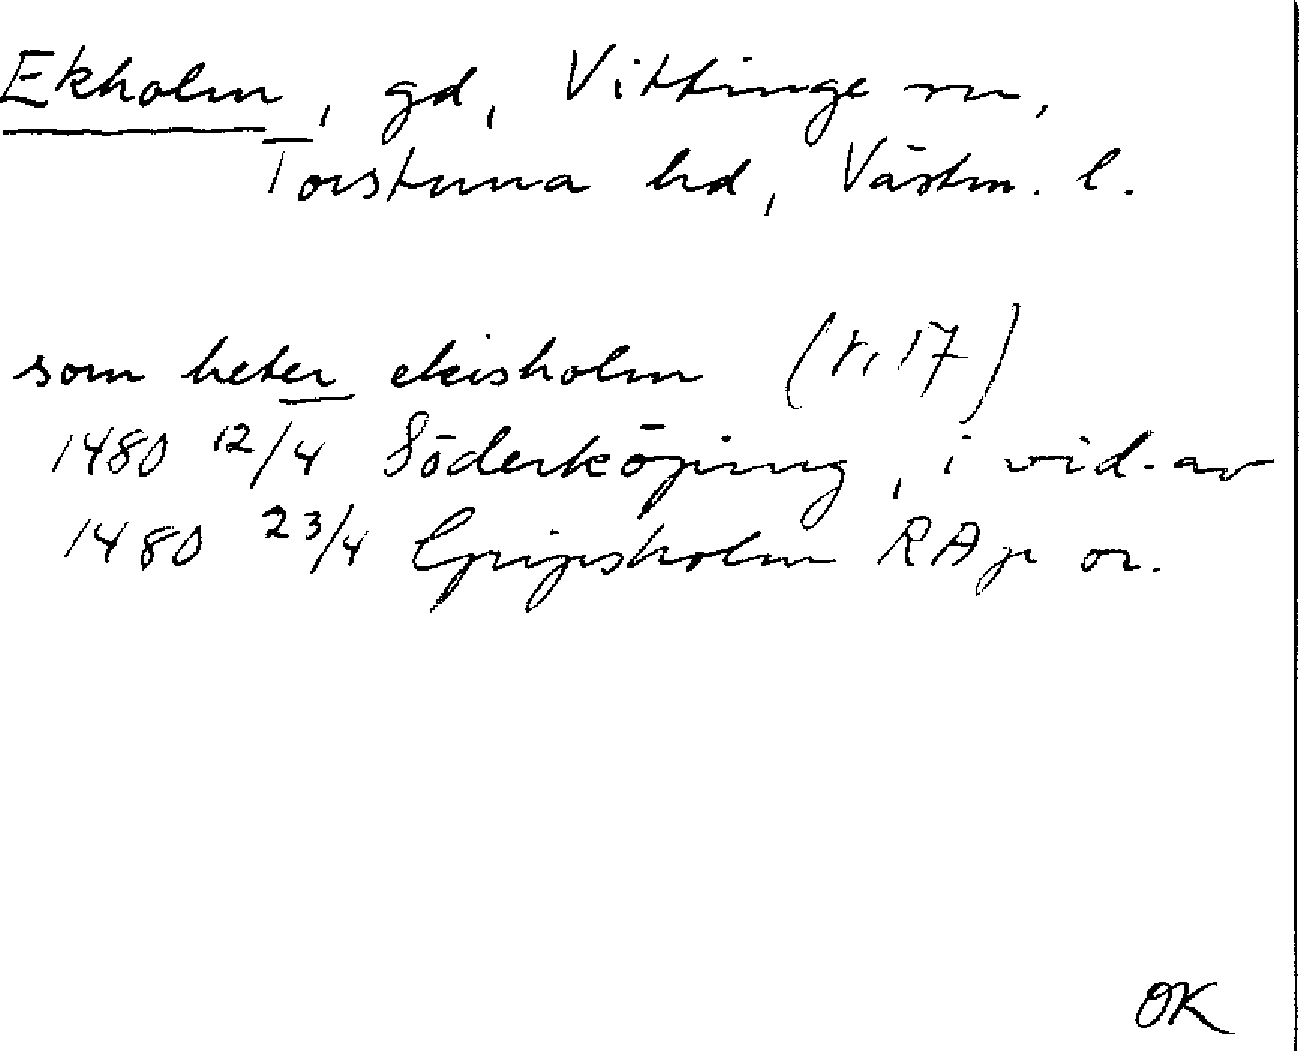 Ekholm, gd, Vittinge sn,
Torstuna hd, Västm. l.
som heter ekisholm (r. 17)
1480 12/4 Söderköping, i vid. av
1480 23/4 Gripsholm RAp or.
OK